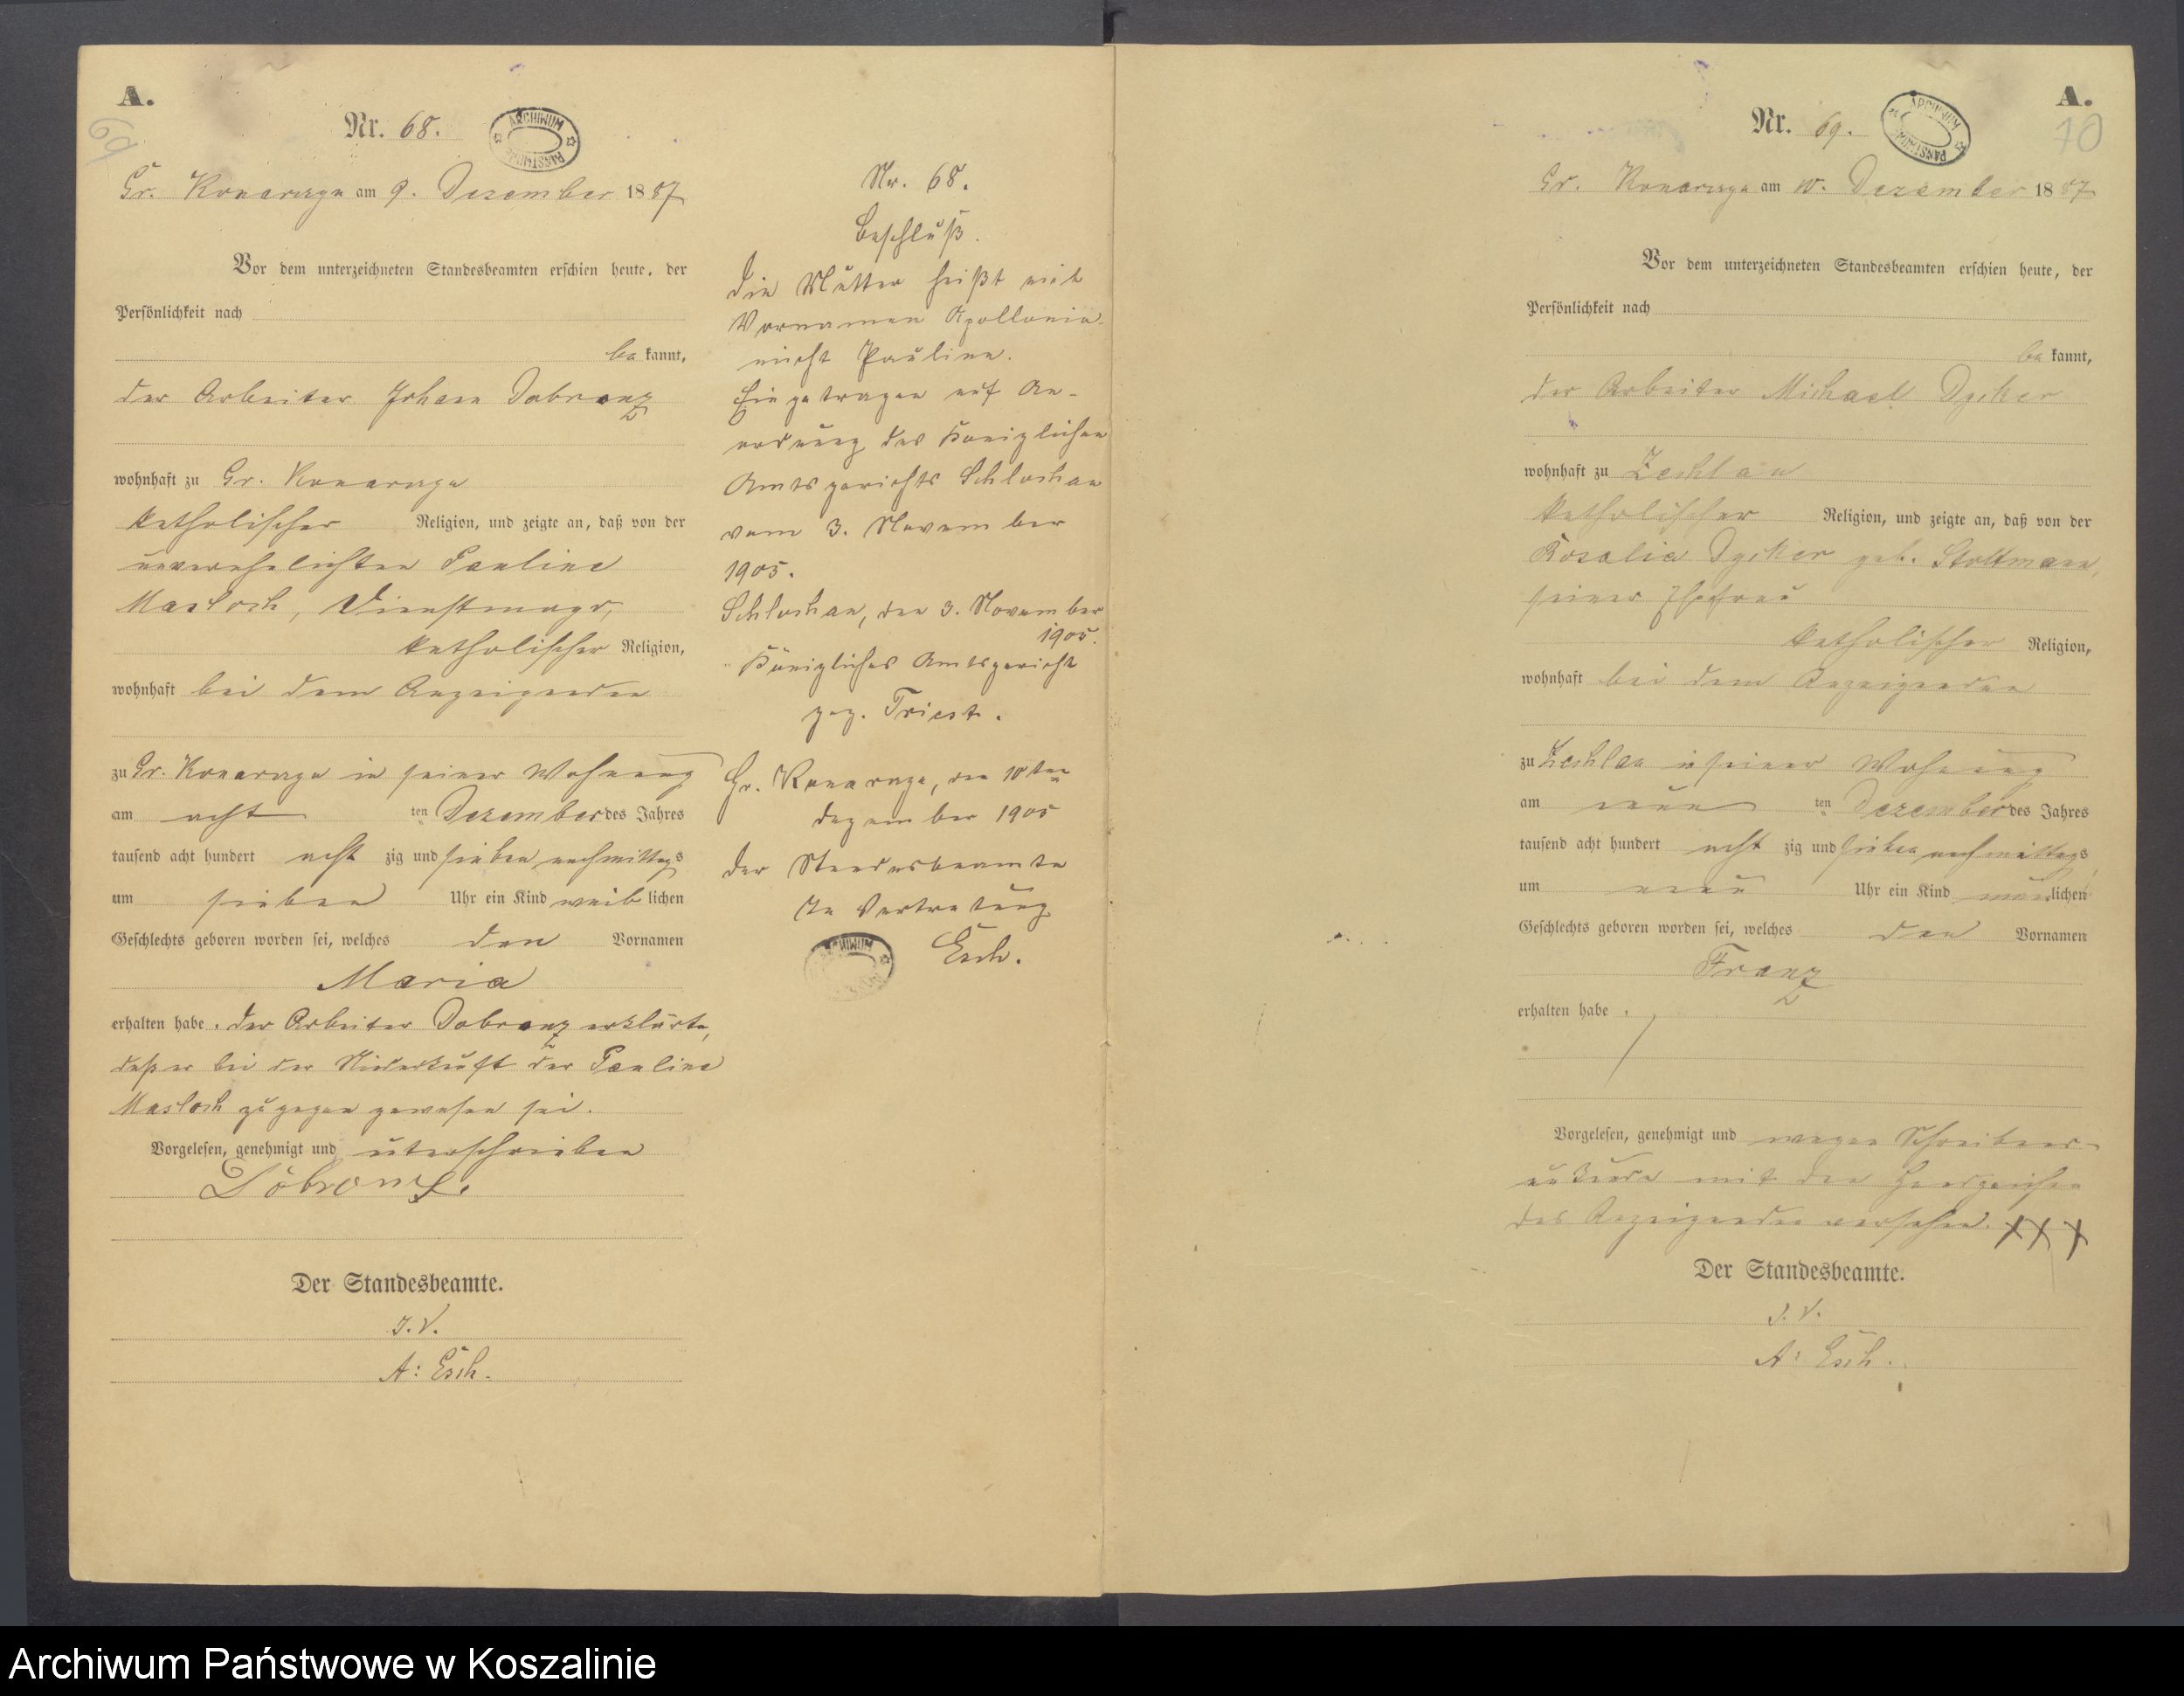 A.
69
Nr. 68.
ARCHIWUM PAŃSTWOWE
Gr. Konarczyn am 9. Dezember 1887
Vor dem unterzeichneten Standesbeamten erschien heute, der
Persönlichkeit nach
be kannt,
der Arbeiter Johann Dobranz
wohnhaft zu Gr. Konarczyn
katholischer Religion, und zeigte an, daß von der
unverehelichten Pauline
Masloch, Dienstmagd,
katholischer Religion,
wohnhaft bei dem Anzeigenden
zu Gr. Konarczyn in seiner Wohnung
am acht ten Dezember des Jahres
tausend acht hundert acht zig und sieben nachmittags
um sieben Uhr ein Kind weib lichen
Geschlechts geboren worden sei, welches den Vornamen
Maria
erhalten habe. Der Arbeiter Dobranz erklärte,
daß er bei der Niederkunft der Pauline
Masloch zugegen gewesen sei.
Vorgelesen, genehmigt und unterschrieben
Dobronz.
Der Standesbeamte.
J. V.
A: Esch.
Nr. 68.
Beschluß.
Die Mutter heißt mit
Vornamen Apollonia
nicht Pauline.
Eingetragen auf An-
ordnung des Königlichen
Amtsgerichts Schlochau
vom 3. November
1905.
Schlochau, den 3. November
1905.
Königliches Amtsgericht
gez. Triest.
Gr. Konarczyn, den 10ten
Dezember 1905
Der Standesbeamte
In Vertretung
Esch.
A.
70
Nr. 69.
ARCHIWUM PAŃSTWOWE
Gr. Konarczyn am 10. Dezember 1887
Vor dem unterzeichneten Standesbeamten erschien heute, der
Persönlichkeit nach
be kannt,
der Arbeiter Michael Dyker
wohnhaft zu Zechlau
katholischer Religion, und zeigte an, daß von der
Rosalia Dyker geb. Stoltmann,
seiner Ehefrau
katholischer Religion,
wohnhaft bei dem Anzeigenden
zu Zechlau in seiner Wohnung
am neun ten Dezember des Jahres
tausend acht hundert acht zig und sieben nachmittags
um neun Uhr ein Kind männlichen
Geschlechts geboren worden sei, welches den Vornamen
Franz
erhalten habe.
Vorgelesen, genehmigt und wegen Schreibens-
unkunde mit den Handzeichen
des Anzeigenden versehen. XXX
Der Standesbeamte.
J. V.
A: Esch.
Archiwum Państwowe w Koszalinie